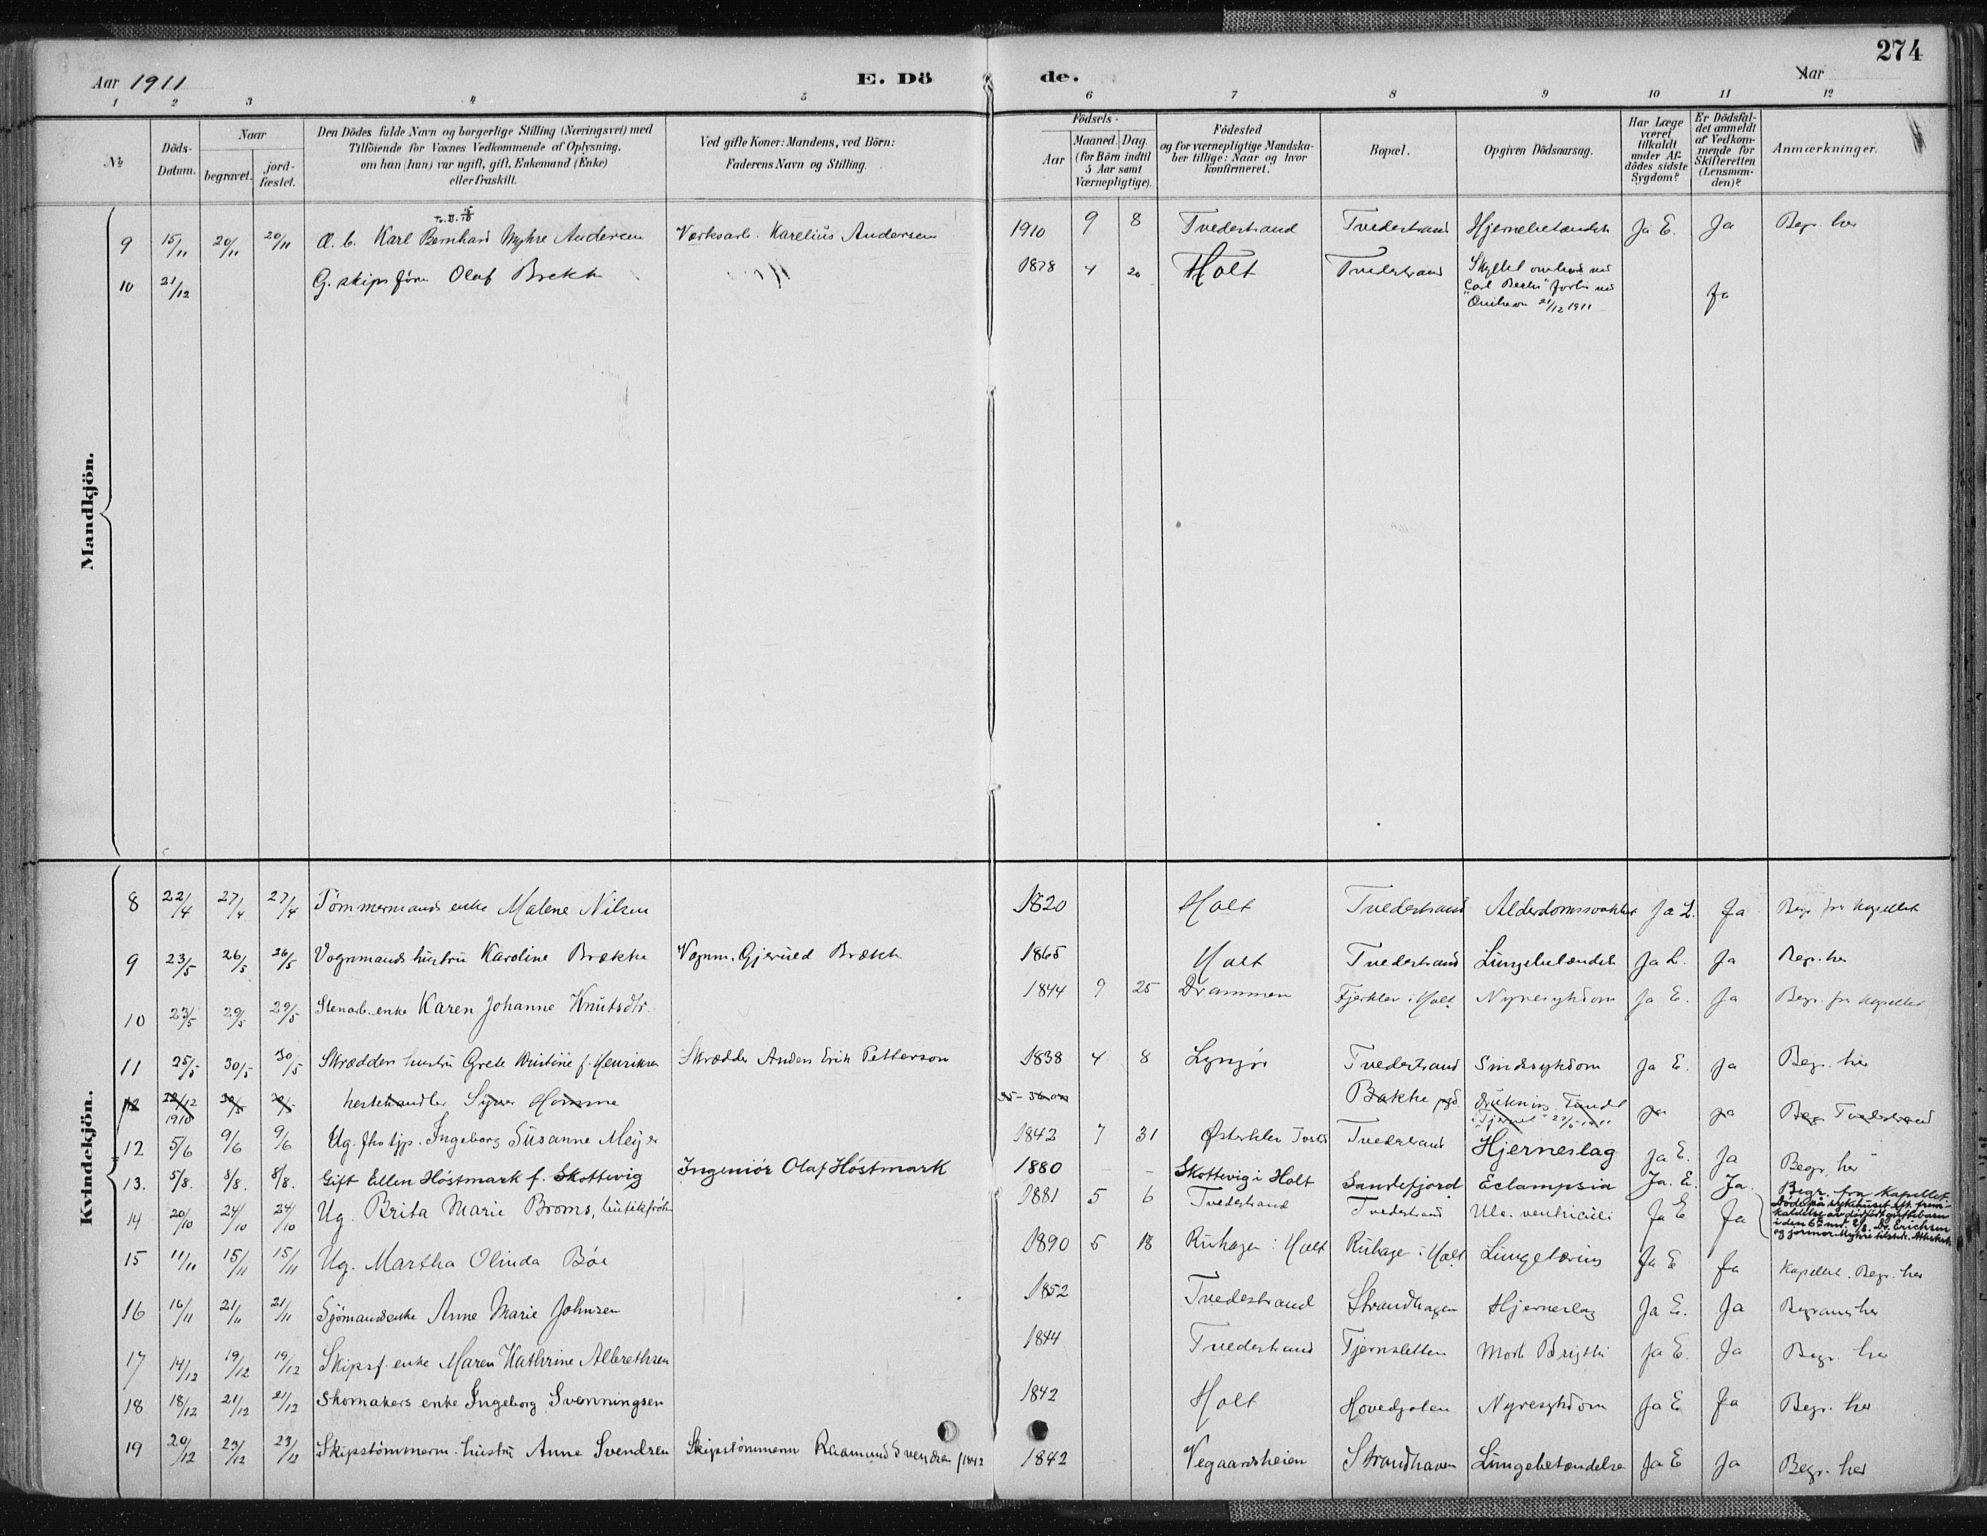 274
Aar 1911
E. Dö de.
Aar
1 2 3 4 5 6 7 8 9 10 11 12
№
Döds-Datum.
Naar
begravet.
jord-fæstet.
Den Dödes fulde Navn og borgerlige Stilling (Næringsvei) med
Tilföiende for Voxnes Vedkommende af Oplysning,
om han (hun) var ugift, gift, Enkemand (Enke)
eller fraskilt.
Ved gifte Koner: Mandens, ved Börn:
Faderens Navn og Stilling.
Födsels-
Aar
Maaned. Dag.
(for Börn indtil
5 Aar samt
Værnepligtige).
Födested
og for værnepligtige Mandska-
ber tillige: Naar og hvor
konfirmeret.
Bopæl.
Opgiven Dödsaarsag.
Har Læge
været
tilkaldt
under Af-
dödes sidste
Sygdom?
Er Dödsfal-
det anmeldt
af Vedkom-
mende for
Skifteretten
(Lensman-
den)?
Anmærkninger.
Mandkjön.
9 15/11 20/11 20/11 Karl Bernhard Myhre Andersen Værksarb. Karelius Andersen 1910 9 8 Tvedestrand Tvedestrand Hjernebetændels Ja E. Ja Begr. her
10 21/12 G. skipsförer Olaf Brekke 1878 4 20 Holt Tvedestrand Skyllet overbord 21/12 1911 Ja
Kvindekjön.
8 22/4 27/4 27/4 Tømmermands enke Malene Nilsen 1820 Holt Tvedestrand Alderdomssvakhet Ja L. Ja Begr. fra Kapellet
9 23/5 26/5 26/5 Vognmands hustru Karoline Brække Vognm. Gjeruld Brække 1865 Holt Tvedestrand Lungebetændels Ja L. Ja Begr. her
10 23/5 29/5 29/5 Stenarb. enke Karen Johanne Knutsdtr. 1844 9 25 Drammen Fjerkler i Holt Nyresykdom Ja E. Ja Begr. fra Kapellet
11 25/5 30/5 30/5 Skrædders hustru Grete Kristine f. Henriksen Skrædder Anders Erik Petterson 1838 4 8 Lyngør Tvedestrand Sindssykdom Ja E. Ja Begr. her
12 22/12 1910 hestehandler Homme Bakke Drukning Fundet Tjernet Ja Ja Begr. Tvedestrand
12 5/6 9/6 9/6 Ug. fhv. tjp. Ingeborg Susanne Meijer 1842 7 31 Tvedestrand Hjerneslag Ja E. Ja Begr. her
13. 5/8. 8/8. 8/8. Gift Ellen Höstmark f. Skottevig Ingeniör Olaf Höstmark 1880 - - Skottevig i Holt Sandefjord Eclampsia Ja. E. Ja. Begr. fra Kapellet.
Döde på sykehuset eft. frem-
kaldelse av dödfödt guttebarn
i den 6te mnd. 2/8. Dr. Erichsen
og jormor Myhre tilstede.
14 20/10 24/10 24/10 Ug. Brita Marie Broms, butikfröken 1881 5 6 Tvedestrand Tvedestrand Ulc. ventriculi Ja E Ja
15 11/11 15/11 15/11 Ug. Martha Olinda Böe 1890 5 18 Ruhagen i Holt Ruhage i Holt Ja E Ja Kapellet. Begr. her
16 16/11 21/11 21/11 Sjömandsenke Anne Marie Johnsen 1852 Tvedestrand Strandhagen Hjerneslag Ja E. Ja Begravet her
17 14/12 19/12 19/12 Skipsf. enke Maren Kathrine Albrethsen 1844 Tvedestrand Tjernsletten Morb. Brigthi Ja E. Ja Begr. her
18 18/12 21/12 21/12 Skomakers enke Ingeborg Svenningsen 1842 Holt Hovedgaten Nyresykdom Ja E Ja Begr. her
19 20/12 23/12 23/12 Skipstömmerm. hustru Anne Svendsen Skipstömmerm Raamund Svendsen f 1842 1842 Vegaardsheien Strandhaven Lungebetændelse Ja E Ja Begr. her